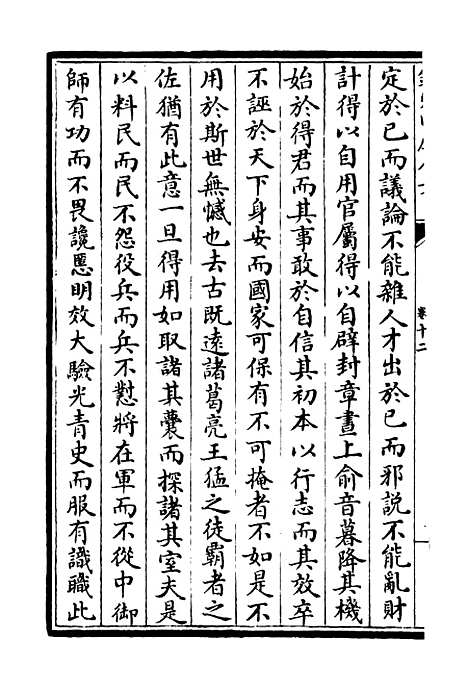 定於已而議論不能雜人才出於已而邪說不能亂財
計得以自用官屬得以自辟封章晝上俞音暮降其機
始於得君而其事敢於自信其初本以行志而其效卒
不誣於天下身安而國家可保有不可掩者不如是不
用於斯世無憾也去古既逺諸葛亮王猛之徒霸者之
佐猶有此意一旦得用如取諸其囊而探諸其室夫是
以料民而民不怨役兵而兵不懟將在軍而不從中御
師有功而不畏讒慝明效大驗光青史而服有識職此
卷十二